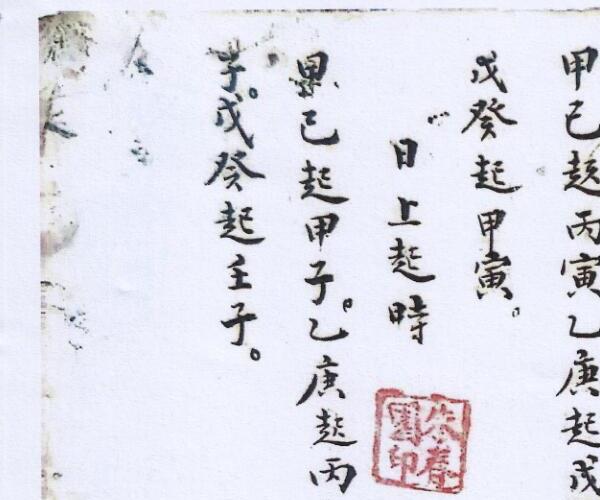 甲己起丙寅乙庚起戊
戊癸起甲寅。
日上起時
己起甲子。乙庚起丙
子。戊癸起壬子。